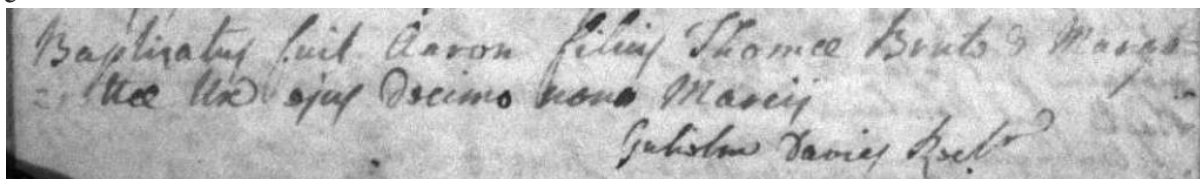 Baptizatus fuit Aaron filius Thomæ Brute & Marga=
=rettæ Ux ejus decimo nono Marcij
Guliolm Davies Rect^r